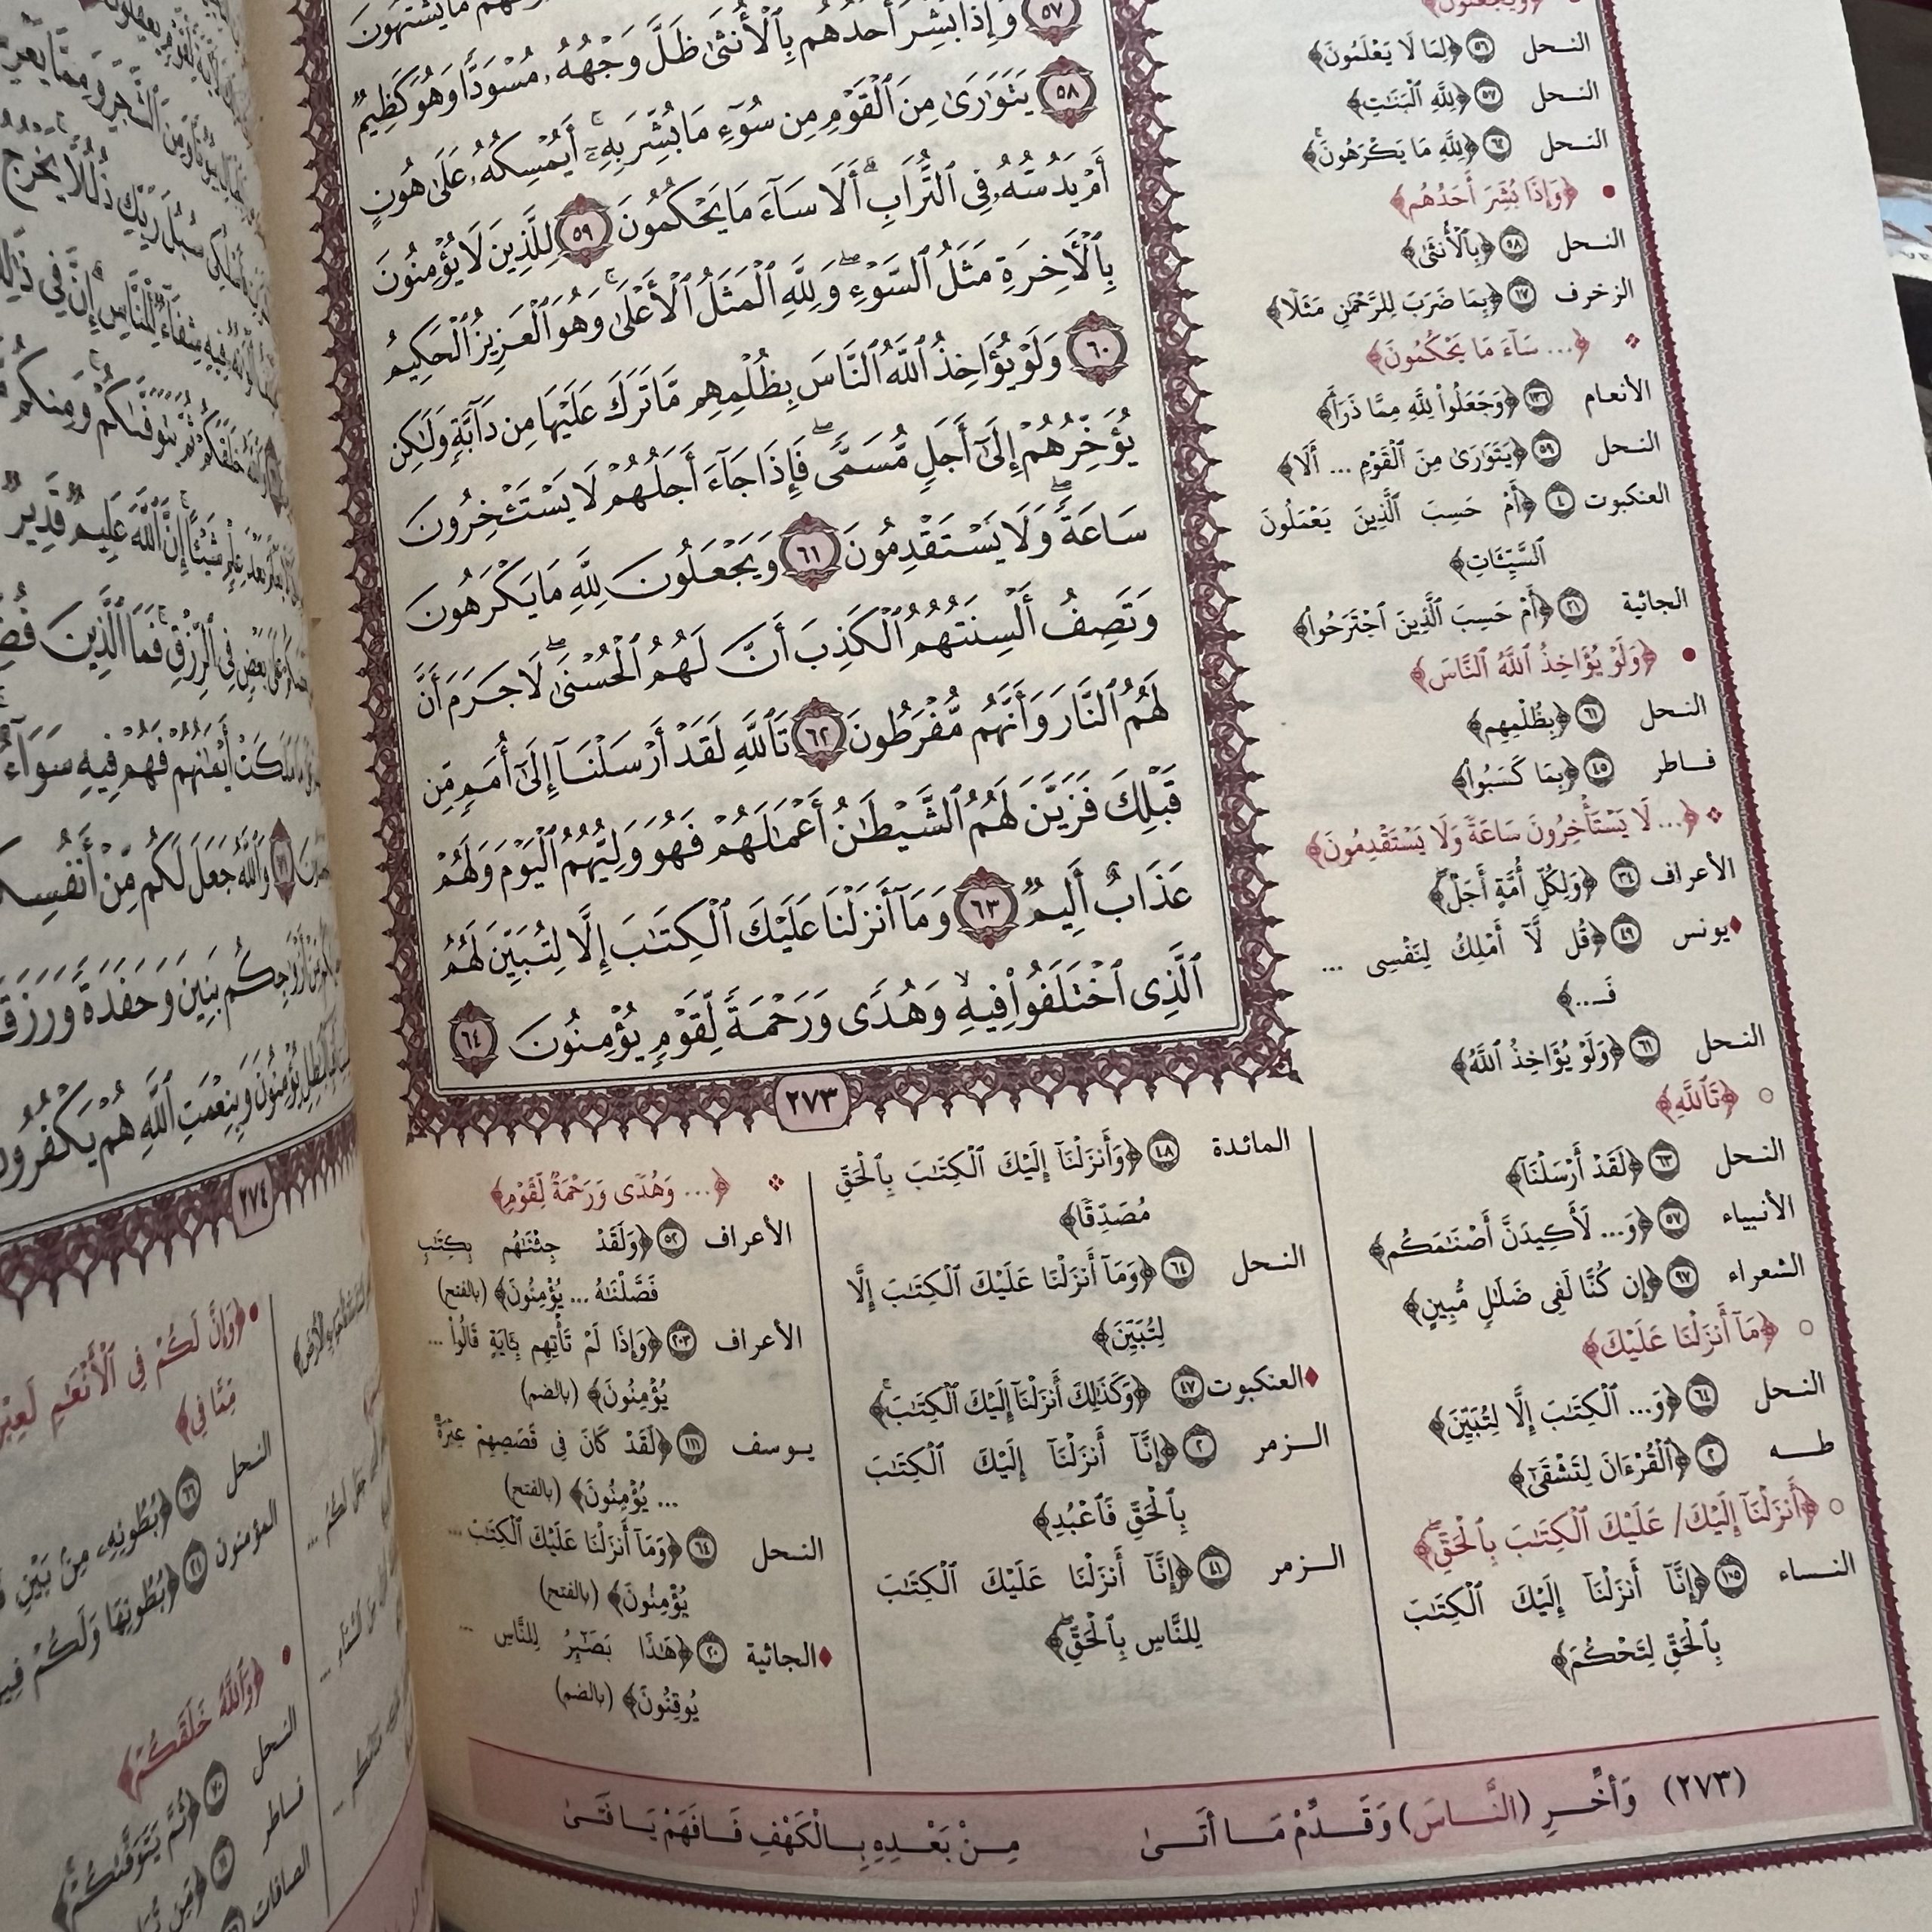 مَا يَشْتَهُونَ
٥٧ وَإِذَا بُشِّرَ أَحَدُهُم بِٱلْأُنثَىٰ ظَلَّ وَجْهُهُۥ مُسْوَدًّا وَهُوَ كَظِيمٌ
٥٨ يَتَوَٰرَىٰ مِنَ ٱلْقَوْمِ مِن سُوٓءِ مَا بُشِّرَ بِهِۦٓ ۚ أَيُمْسِكُهُۥ عَلَىٰ هُونٍ
أَمْ يَدُسُّهُۥ فِى ٱلتُّرَابِ ۗ أَلَا سَآءَ مَا يَحْكُمُونَ ٥٩ لِلَّذِينَ لَا يُؤْمِنُونَ
بِٱلْـَٔاخِرَةِ مَثَلُ ٱلسَّوْءِ ۖ وَلِلَّهِ ٱلْمَثَلُ ٱلْأَعْلَىٰ ۚ وَهُوَ ٱلْعَزِيزُ ٱلْحَكِيمُ
٦٠ وَلَوْ يُؤَاخِذُ ٱللَّهُ ٱلنَّاسَ بِظُلْمِهِم مَّا تَرَكَ عَلَيْهَا مِن دَآبَّةٍ وَلَٰكِن
يُؤَخِّرُهُمْ إِلَىٰٓ أَجَلٍ مُّسَمًّى ۖ فَإِذَا جَآءَ أَجَلُهُمْ لَا يَسْتَـْٔخِرُونَ
سَاعَةً ۖ وَلَا يَسْتَقْدِمُونَ ٦١ وَيَجْعَلُونَ لِلَّهِ مَا يَكْرَهُونَ
وَتَصِفُ أَلْسِنَتُهُمُ ٱلْكَذِبَ أَنَّ لَهُمُ ٱلْحُسْنَىٰ ۖ لَا جَرَمَ أَنَّ
لَهُمُ ٱلنَّارَ وَأَنَّهُم مُّفْرَطُونَ ٦٢ تَٱللَّهِ لَقَدْ أَرْسَلْنَآ إِلَىٰٓ أُمَمٍ مِّن
قَبْلِكَ فَزَيَّنَ لَهُمُ ٱلشَّيْطَٰنُ أَعْمَٰلَهُمْ فَهُوَ وَلِيُّهُمُ ٱلْيَوْمَ وَلَهُمْ
عَذَابٌ أَلِيمٌ ٦٣ وَمَآ أَنزَلْنَا عَلَيْكَ ٱلْكِتَٰبَ إِلَّا لِتُبَيِّنَ لَهُمُ
ٱلَّذِى ٱخْتَلَفُوا۟ فِيهِ ۙ وَهُدًى وَرَحْمَةً لِّقَوْمٍ يُؤْمِنُونَ ٦٤
٢٧٣
﴿وَيَجْعَلُونَ﴾
النحل ٥٦ ﴿لِمَا لَا يَعْلَمُونَ﴾
النحل ٥٧ ﴿لِلَّهِ ٱلْبَنَٰتِ﴾
النحل ٦٢ ﴿لِلَّهِ مَا يَكْرَهُونَ ۚ﴾
﴿وَإِذَا بُشِّرَ أَحَدُهُم﴾
النحل ٥٨ ﴿بِٱلْأُنثَىٰ﴾
الزخرف ١٧ ﴿بِمَا ضَرَبَ لِلرَّحْمَٰنِ مَثَلًا﴾
﴿... سَآءَ مَا يَحْكُمُونَ﴾
الأنعام ١٣٦ ﴿وَجَعَلُوا۟ لِلَّهِ مِمَّا ذَرَأَ﴾
النحل ٥٩ ﴿يَتَوَٰرَىٰ مِنَ ٱلْقَوْمِ ... أَلَا﴾
العنكبوت ٤ ﴿أَمْ حَسِبَ ٱلَّذِينَ يَعْمَلُونَ
ٱلسَّيِّـَٔاتِ﴾
الجاثية ٢١ ﴿أَمْ حَسِبَ ٱلَّذِينَ ٱجْتَرَحُوا۟﴾
﴿وَلَوْ يُؤَاخِذُ ٱللَّهُ ٱلنَّاسَ﴾
النحل ٦١ ﴿بِظُلْمِهِم﴾
فاطر ٤٥ ﴿بِمَا كَسَبُوا۟﴾
﴿... لَا يَسْتَأْخِرُونَ سَاعَةً وَلَا يَسْتَقْدِمُونَ﴾
الأعراف ٣٤ ﴿وَلِكُلِّ أُمَّةٍ أَجَلٌ ۖ﴾
يونس ٤٩ ﴿قُل لَّآ أَمْلِكُ لِنَفْسِى ...
فَـ...﴾
النحل ٦١ ﴿وَلَوْ يُؤَاخِذُ ٱللَّهُ﴾
﴿تَٱللَّهِ﴾
النحل ٦٣ ﴿لَقَدْ أَرْسَلْنَآ﴾
الأنبياء ٥٧ ﴿وَ... لَأَكِيدَنَّ أَصْنَٰمَكُم﴾
الشعراء ٩٧ ﴿إِن كُنَّا لَفِى ضَلَٰلٍ مُّبِينٍ﴾
﴿مَآ أَنزَلْنَا عَلَيْكَ﴾
النحل ٦٤ ﴿وَ... ٱلْكِتَٰبَ إِلَّا لِتُبَيِّنَ﴾
طه ٢ ﴿ٱلْقُرْءَانَ لِتَشْقَىٰٓ﴾
﴿أَنزَلْنَآ إِلَيْكَ/ عَلَيْكَ ٱلْكِتَٰبَ بِٱلْحَقِّ ۖ﴾
النساء ١٠٥ ﴿إِنَّآ أَنزَلْنَآ إِلَيْكَ ٱلْكِتَٰبَ
بِٱلْحَقِّ لِتَحْكُمَ﴾
المائدة ٤٨ ﴿وَأَنزَلْنَآ إِلَيْكَ ٱلْكِتَٰبَ بِٱلْحَقِّ
مُصَدِّقًا﴾
النحل ٦٤ ﴿وَمَآ أَنزَلْنَا عَلَيْكَ ٱلْكِتَٰبَ إِلَّا
لِتُبَيِّنَ﴾
العنكبوت ٤٧ ﴿وَكَذَٰلِكَ أَنزَلْنَآ إِلَيْكَ ٱلْكِتَٰبَ ۚ﴾
الزمر ٢ ﴿إِنَّآ أَنزَلْنَآ إِلَيْكَ ٱلْكِتَٰبَ
بِٱلْحَقِّ فَٱعْبُدِ﴾
الزمر ٤١ ﴿إِنَّآ أَنزَلْنَا عَلَيْكَ ٱلْكِتَٰبَ
لِلنَّاسِ بِٱلْحَقِّ ۖ﴾
﴿... وَهُدًى وَرَحْمَةً لِّقَوْمٍ﴾
الأعراف ٥٢ ﴿وَلَقَدْ جِئْنَٰهُم بِكِتَٰبٍ
فَصَّلْنَٰهُ ... يُؤْمِنُونَ﴾ (بالفتح)
الأعراف ٢٠٣ ﴿وَإِذَا لَمْ تَأْتِهِم بِـَٔايَةٍ قَالُوا۟ ...
يُؤْمِنُونَ﴾ (بالضم)
يوسف ١١١ ﴿لَقَدْ كَانَ فِى قَصَصِهِمْ عِبْرَةٌ
... يُؤْمِنُونَ﴾ (بالفتح)
النحل ٦٤ ﴿وَمَآ أَنزَلْنَا عَلَيْكَ ٱلْكِتَٰبَ ...
يُؤْمِنُونَ﴾ (بالفتح)
الجاثية ٢٠ ﴿هَٰذَا بَصَٰٓئِرُ لِلنَّاسِ ...
يُوقِنُونَ﴾ (بالضم)
(٢٧٣) وَأَخِّرِ (النَّاسَ) وَقَدِّمْ مَا أَتَىٰ مِنْ بَعْدِهِ بِالْكَهْفِ فَافَهَمْ يَا فَتَىٰ
سُبُلَ رَبِّكِ ذُلُلًا ۚ يَخْرُجُ
فِيهِ شِفَآءٌ لِّلنَّاسِ ۗ إِنَّ فِى
خَلَقَكُمْ ثُمَّ يَتَوَفَّىٰكُمْ ۚ وَمِنكُم
بَعْدَ عِلْمٍ شَيْـًٔا ۚ إِنَّ ٱللَّهَ عَلِيمٌ قَدِيرٌ
عَلَىٰ بَعْضٍ فِى ٱلرِّزْقِ ۚ فَمَا ٱلَّذِينَ
مَلَكَتْ أَيْمَٰنُهُمْ فَهُمْ فِيهِ سَوَآءٌ
وَٱللَّهُ جَعَلَ لَكُم مِّنْ أَنفُسِكُمْ
أَزْوَٰجِكُم بَنِينَ وَحَفَدَةً وَرَزَقَ
يُؤْمِنُونَ وَبِنِعْمَتِ ٱللَّهِ هُمْ يَكْفُرُونَ
٢٧٤
﴿وَإِنَّ لَكُمْ فِى ٱلْأَنْعَٰمِ لَعِبْرَةً
مِّمَّا فِى﴾
النحل ٦٦ ﴿بُطُونِهِۦ مِنۢ بَيْنِ
المؤمنون ٢١ ﴿بُطُونِهَا وَلَكُمْ فِيهَا
﴿وَٱللَّهُ خَلَقَكُمْ﴾
النحل ٧٠ ﴿ثُمَّ يَتَوَفَّىٰكُمْ ۚ﴾
فاطر ١١ ﴿مِّن
الصافات